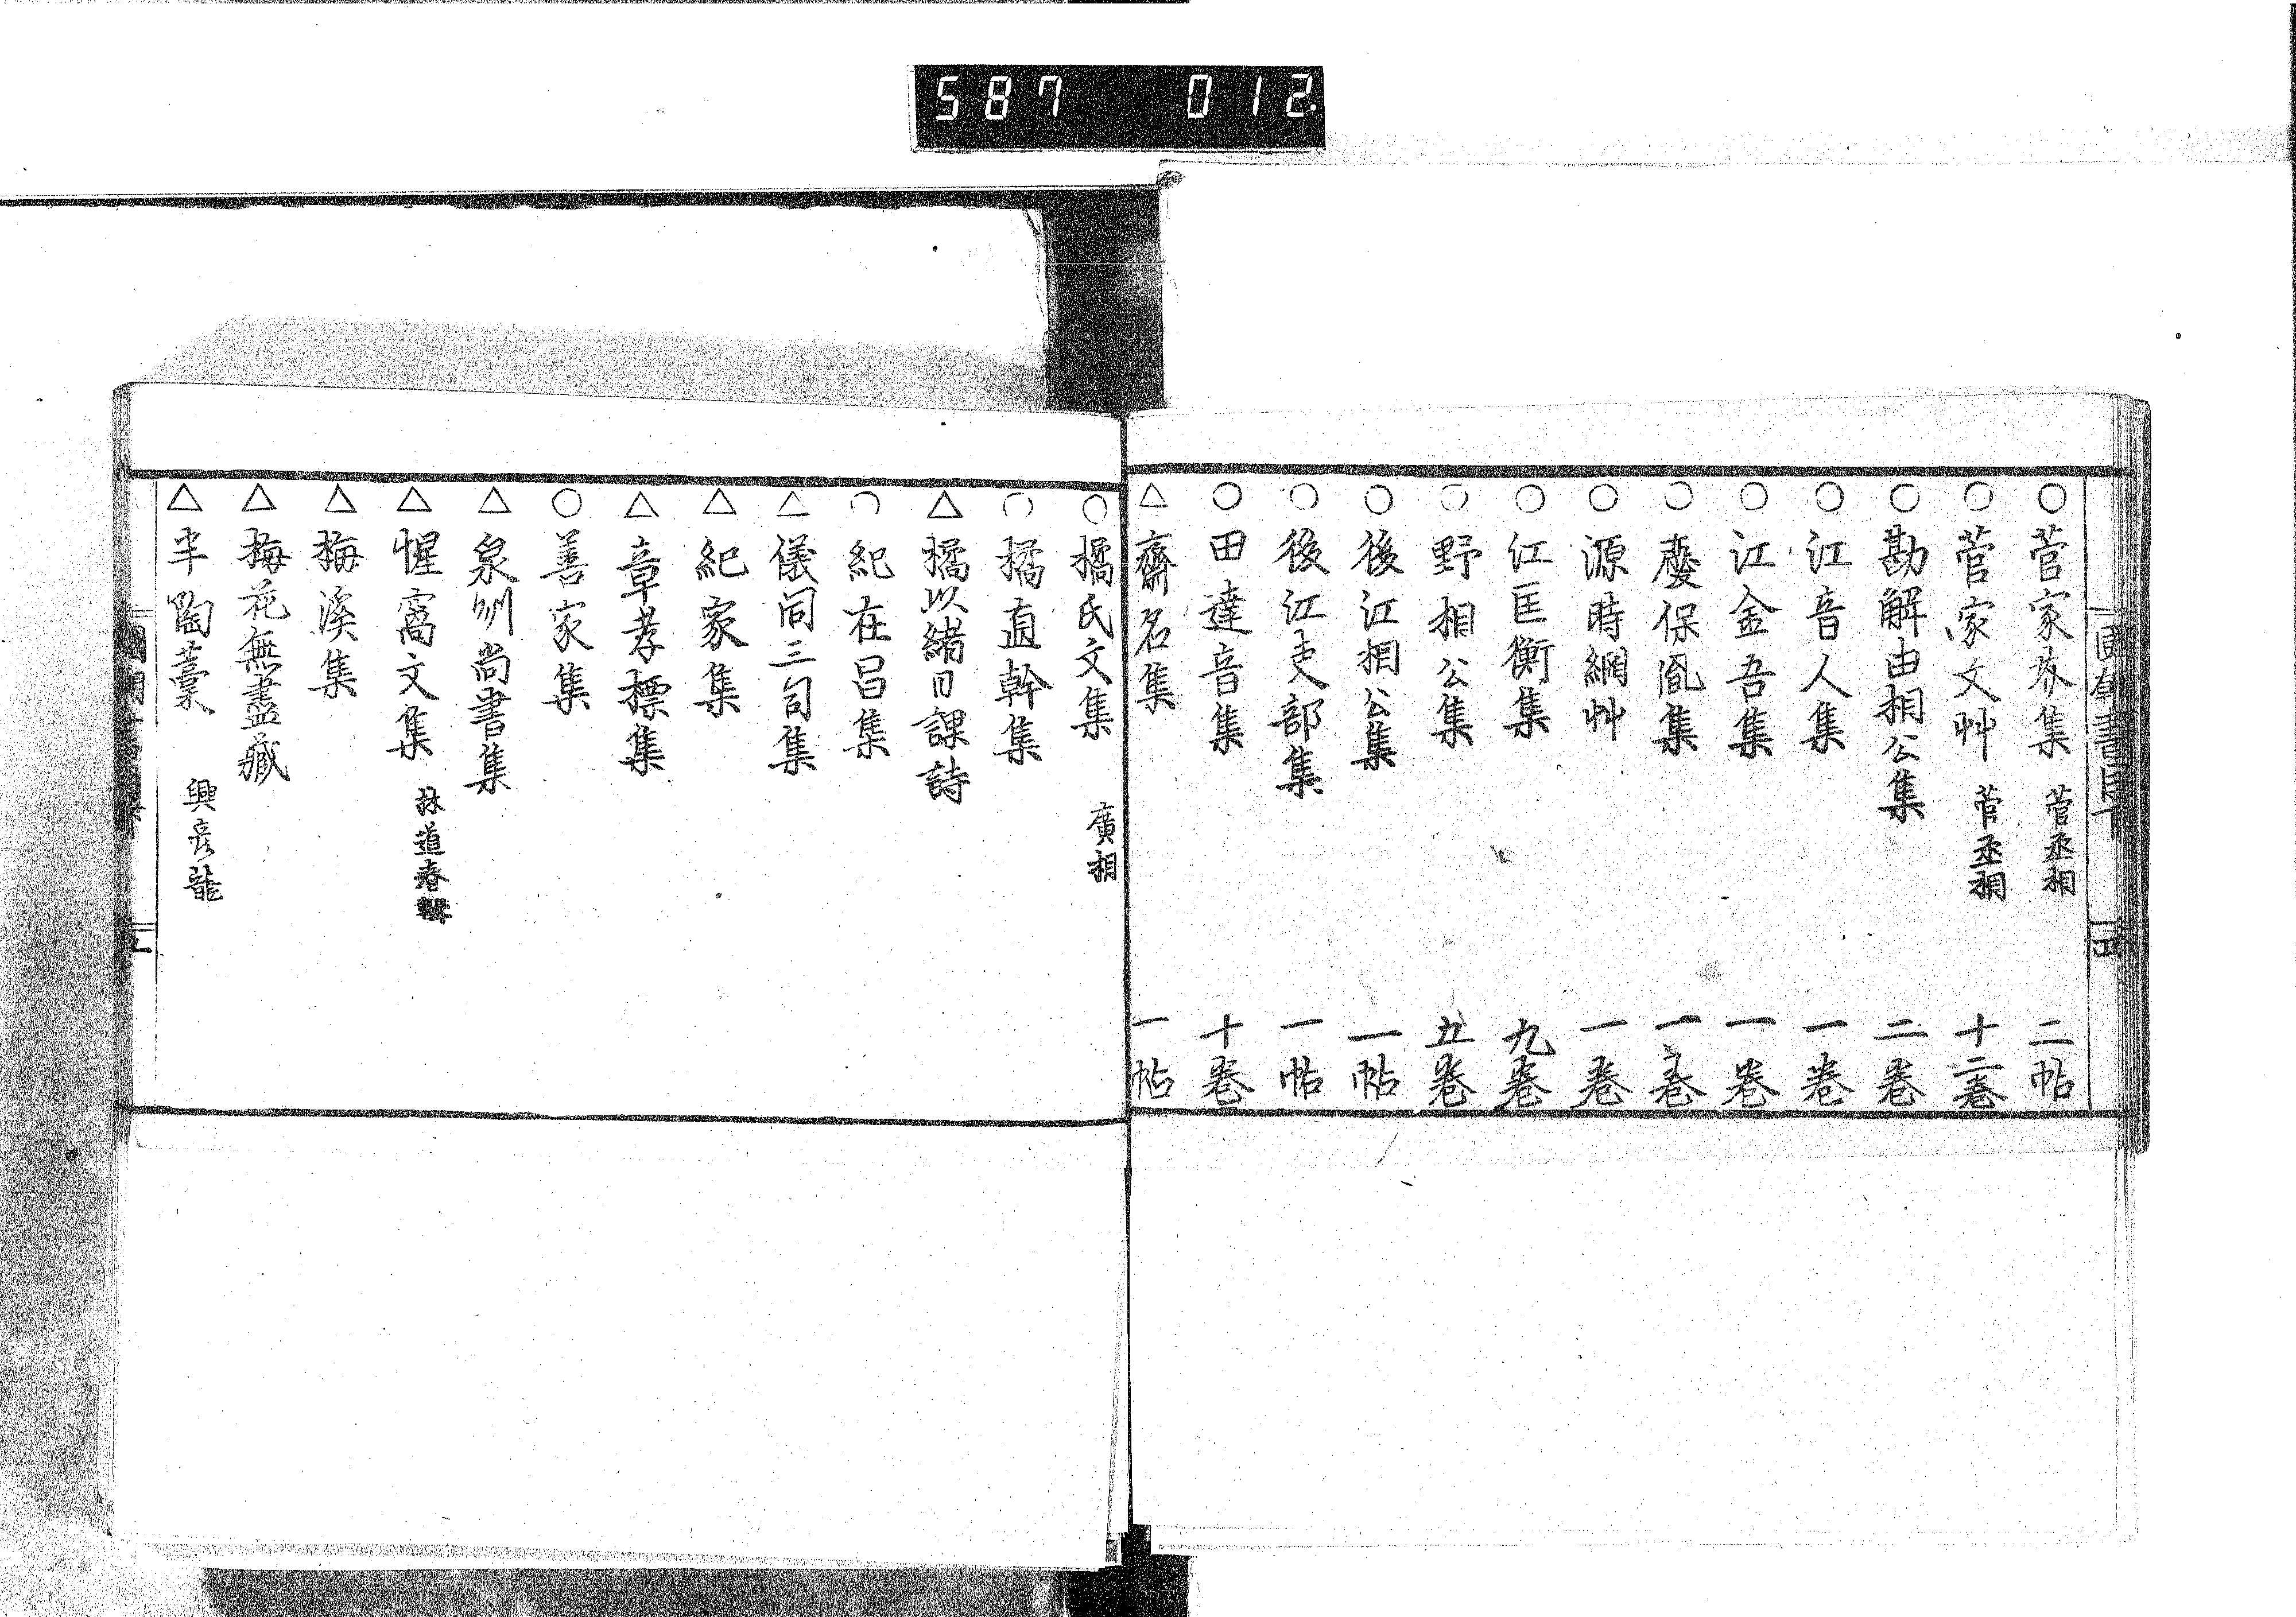 587 012
○菅家集 菅丞相 二帖
○菅家文艸 菅丞相 十二巻
○勘解由相公集 二巻
○江音人集 一巻
○江金吾集 一巻
○慶保胤集 一巻
○源時綱艸 一巻
○江匡衡集 九巻
○野相公集 五巻
○後江相公集 一帖
○後江吏部集 一帖
○田達音集 十巻
△齋名集 一帖
○橘氏文集 廣相
○橘直幹集
△橘以緒日課詩
○紀在昌集
△儀同三司集
△紀家集
△章孝標集
○善家集
△泉州尚書集
△惺窩文集 林道春輯
△梅溪集
△梅花無盡藏
△半陶藁 興彦龍